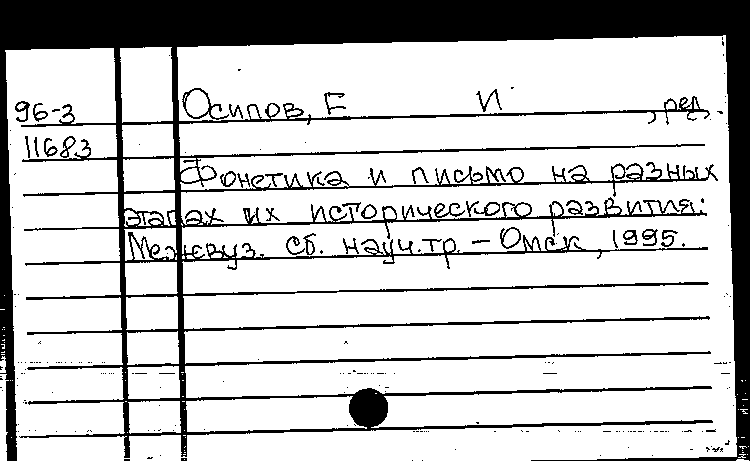 96-3 Осипов, Е И , ред.
11683
Фонетика и письмо на разных
этапах их исторического развития:
Межвуз. сб. науч. тр. – Омск, 1995.